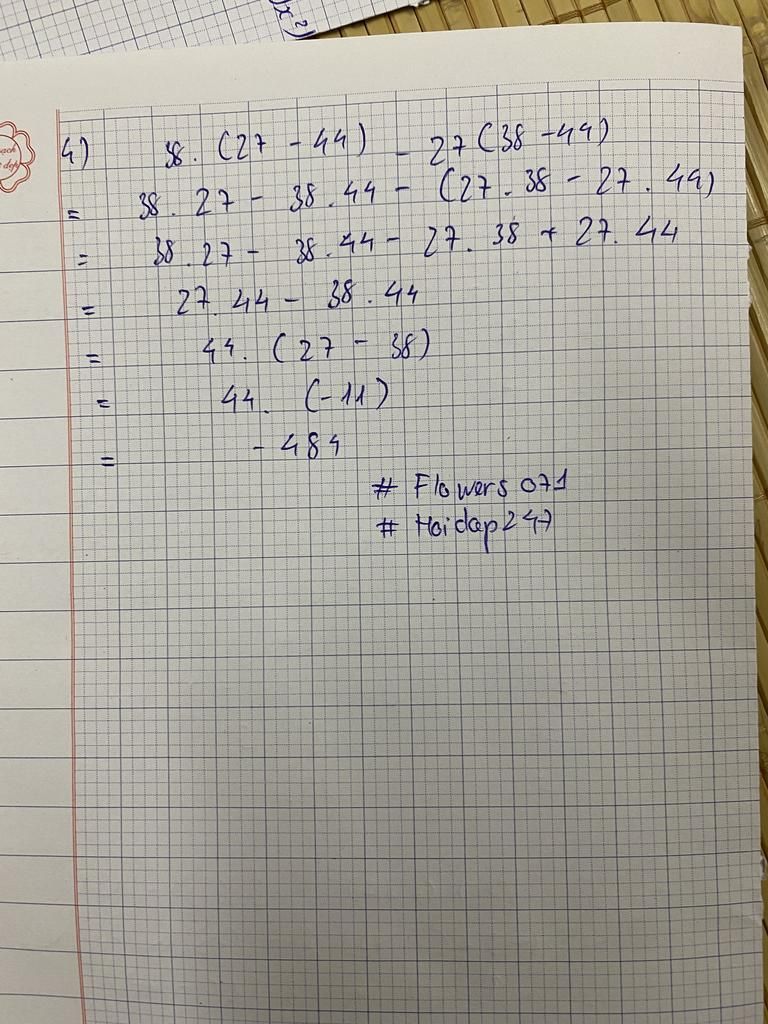 x²)
ach
đẹp
4) 38. (27 - 44) - 27 (38 - 44)
= 38. 27 - 38. 44 - (27. 38 - 27. 44)
= 38. 27 - 38. 44 - 27. 38 + 27. 44
= 27. 44 - 38. 44
= 44. (27 - 38)
= 44. (-11)
= - 484
# Flowers 071
# Hoidap247